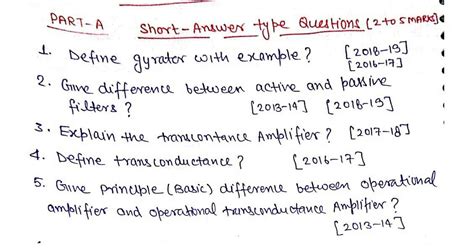 PART-A Short-Answer type Questions (2 to 5 MARKS)
1. Define gyrator with example? [2018-19]
[2016-17]
2. Give difference between active and passive
filters? [2013-14] [2018-19]
3. Explain the transcontance Amplifier? [2017-18]
4. Define transconductance? [2016-17]
5. Give Principle (Basic) difference between operational
amplifier and operational transconductance Amplifier?
[2013-14]